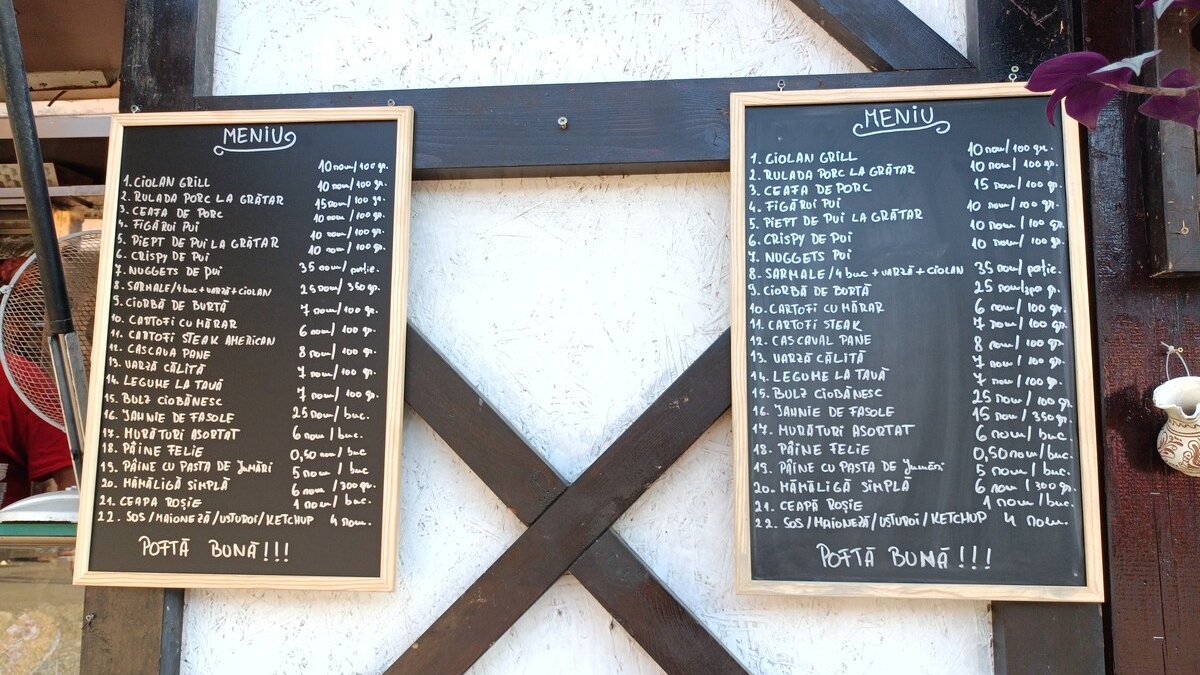 MENIU
1. CIOLAN GRILL
2. RULADA PORC LA GRĂTAR
3. CEAFA DE PORC
4. FIGĂRUI PUI
5. PIEPT DE PUI LA GRĂTAR
6. CRISPY DE PUI
7. NUGGETS DE PUI
8. SARMALE/4buc+VARZĂ+CIOLAN
9. CIORBĂ DE BURTĂ
10. CARTOFI CU MĂRAR
11. CARTOFI STEAK AMERICAN
12. CASCAVA PANE
13. VARZĂ CĂLITĂ
14. LEGUME LA TAVĂ
15. BULZ CIOBĂNESC
16. JAHNIE DE FASOLE
17. MURĂTURI ASORTAT
18. PÂINE FELIE
19. PÂINE CU PASTA DE JUMĂRI
20. MĂMĂLIGĂ SIMPLĂ
21. CEAPA ROȘIE
22. SOS/MAIONEZĂ/USTUROI/KETCHUP
10 ron/100 gr.
10 ron/100 gr.
15 ron/100 gr.
10 ron/100 gr.
10 ron/100 gr.
10 ron/100 gr.
35 ron/porție.
25 ron/350 gr.
7 ron/100 gr.
6 ron/100 gr.
8 ron/100 gr.
7 ron/100 gr.
7 ron/100 gr.
25 ron/buc.
6 ron/buc.
0,50 ron/buc
5 ron/buc
6 ron/300 gr.
1 ron/buc.
4 ron.
POFTĂ BUNĂ!!!
MENIU
1. CIOLAN GRILL
2. RULADA PORC LA GRĂTAR
3. CEAFA DE PORC
4. FIGĂRUI PUI
5. PIEPT DE PUI LA GRĂTAR
6. CRISPY DE PUI
7. NUGGETS PUI
8. SARMALE/4buc+VARZĂ+CIOLAN
9. CIORBĂ DE BURTĂ
10. CARTOFI CU MĂRAR
11. CARTOFI STEAK
12. CASCAVAL PANE
13. VARZĂ CĂLITĂ
14. LEGUME LA TAVĂ
15. BULZ CIOBĂNESC
16. JAHNIE DE FASOLE
17. MURĂTURI ASORTAT
18. PÂINE FELIE
19. PÂINE CU PASTA DE JUMĂRI
20. MĂMĂLIGĂ SIMPLĂ
21. CEAPĂ ROȘIE
22. SOS/MAIONEZĂ/USTUROI/KETCHUP
10 ron/100 gr.
10 ron/100 gr.
15 ron/100 gr.
10 ron/100 gr.
10 ron/100 gr.
10 ron/100 gr.
35 ron/porție.
25 ron/ gr.
6 ron/100 gr.
7 ron/100 gr.
8 ron/100 gr.
7 ron/100 gr.
7 ron/100 gr.
25 ron/100 gr.
15 ron/350 gr.
6 ron/buc.
0,50 ron/buc.
5 ron/buc.
6 ron/300 gr.
1 ron/buc.
4 ron.
POFTĂ BUNĂ!!!